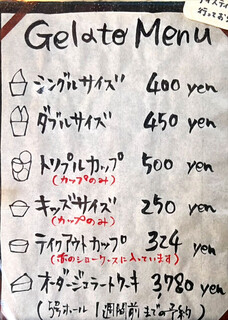 Gelato Menu
シングルサイズ 400 yen
ダブルサイズ 450 yen
トリプルカップ 500 yen
(カップのみ)
キッズサイズ 250 yen
(カップのみ)
テイクアウトカップ 324 yen
(赤のショーケースに入っています)
オーダージェラートケーキ 3780 yen
(5号ホール 1週間前までの予約)